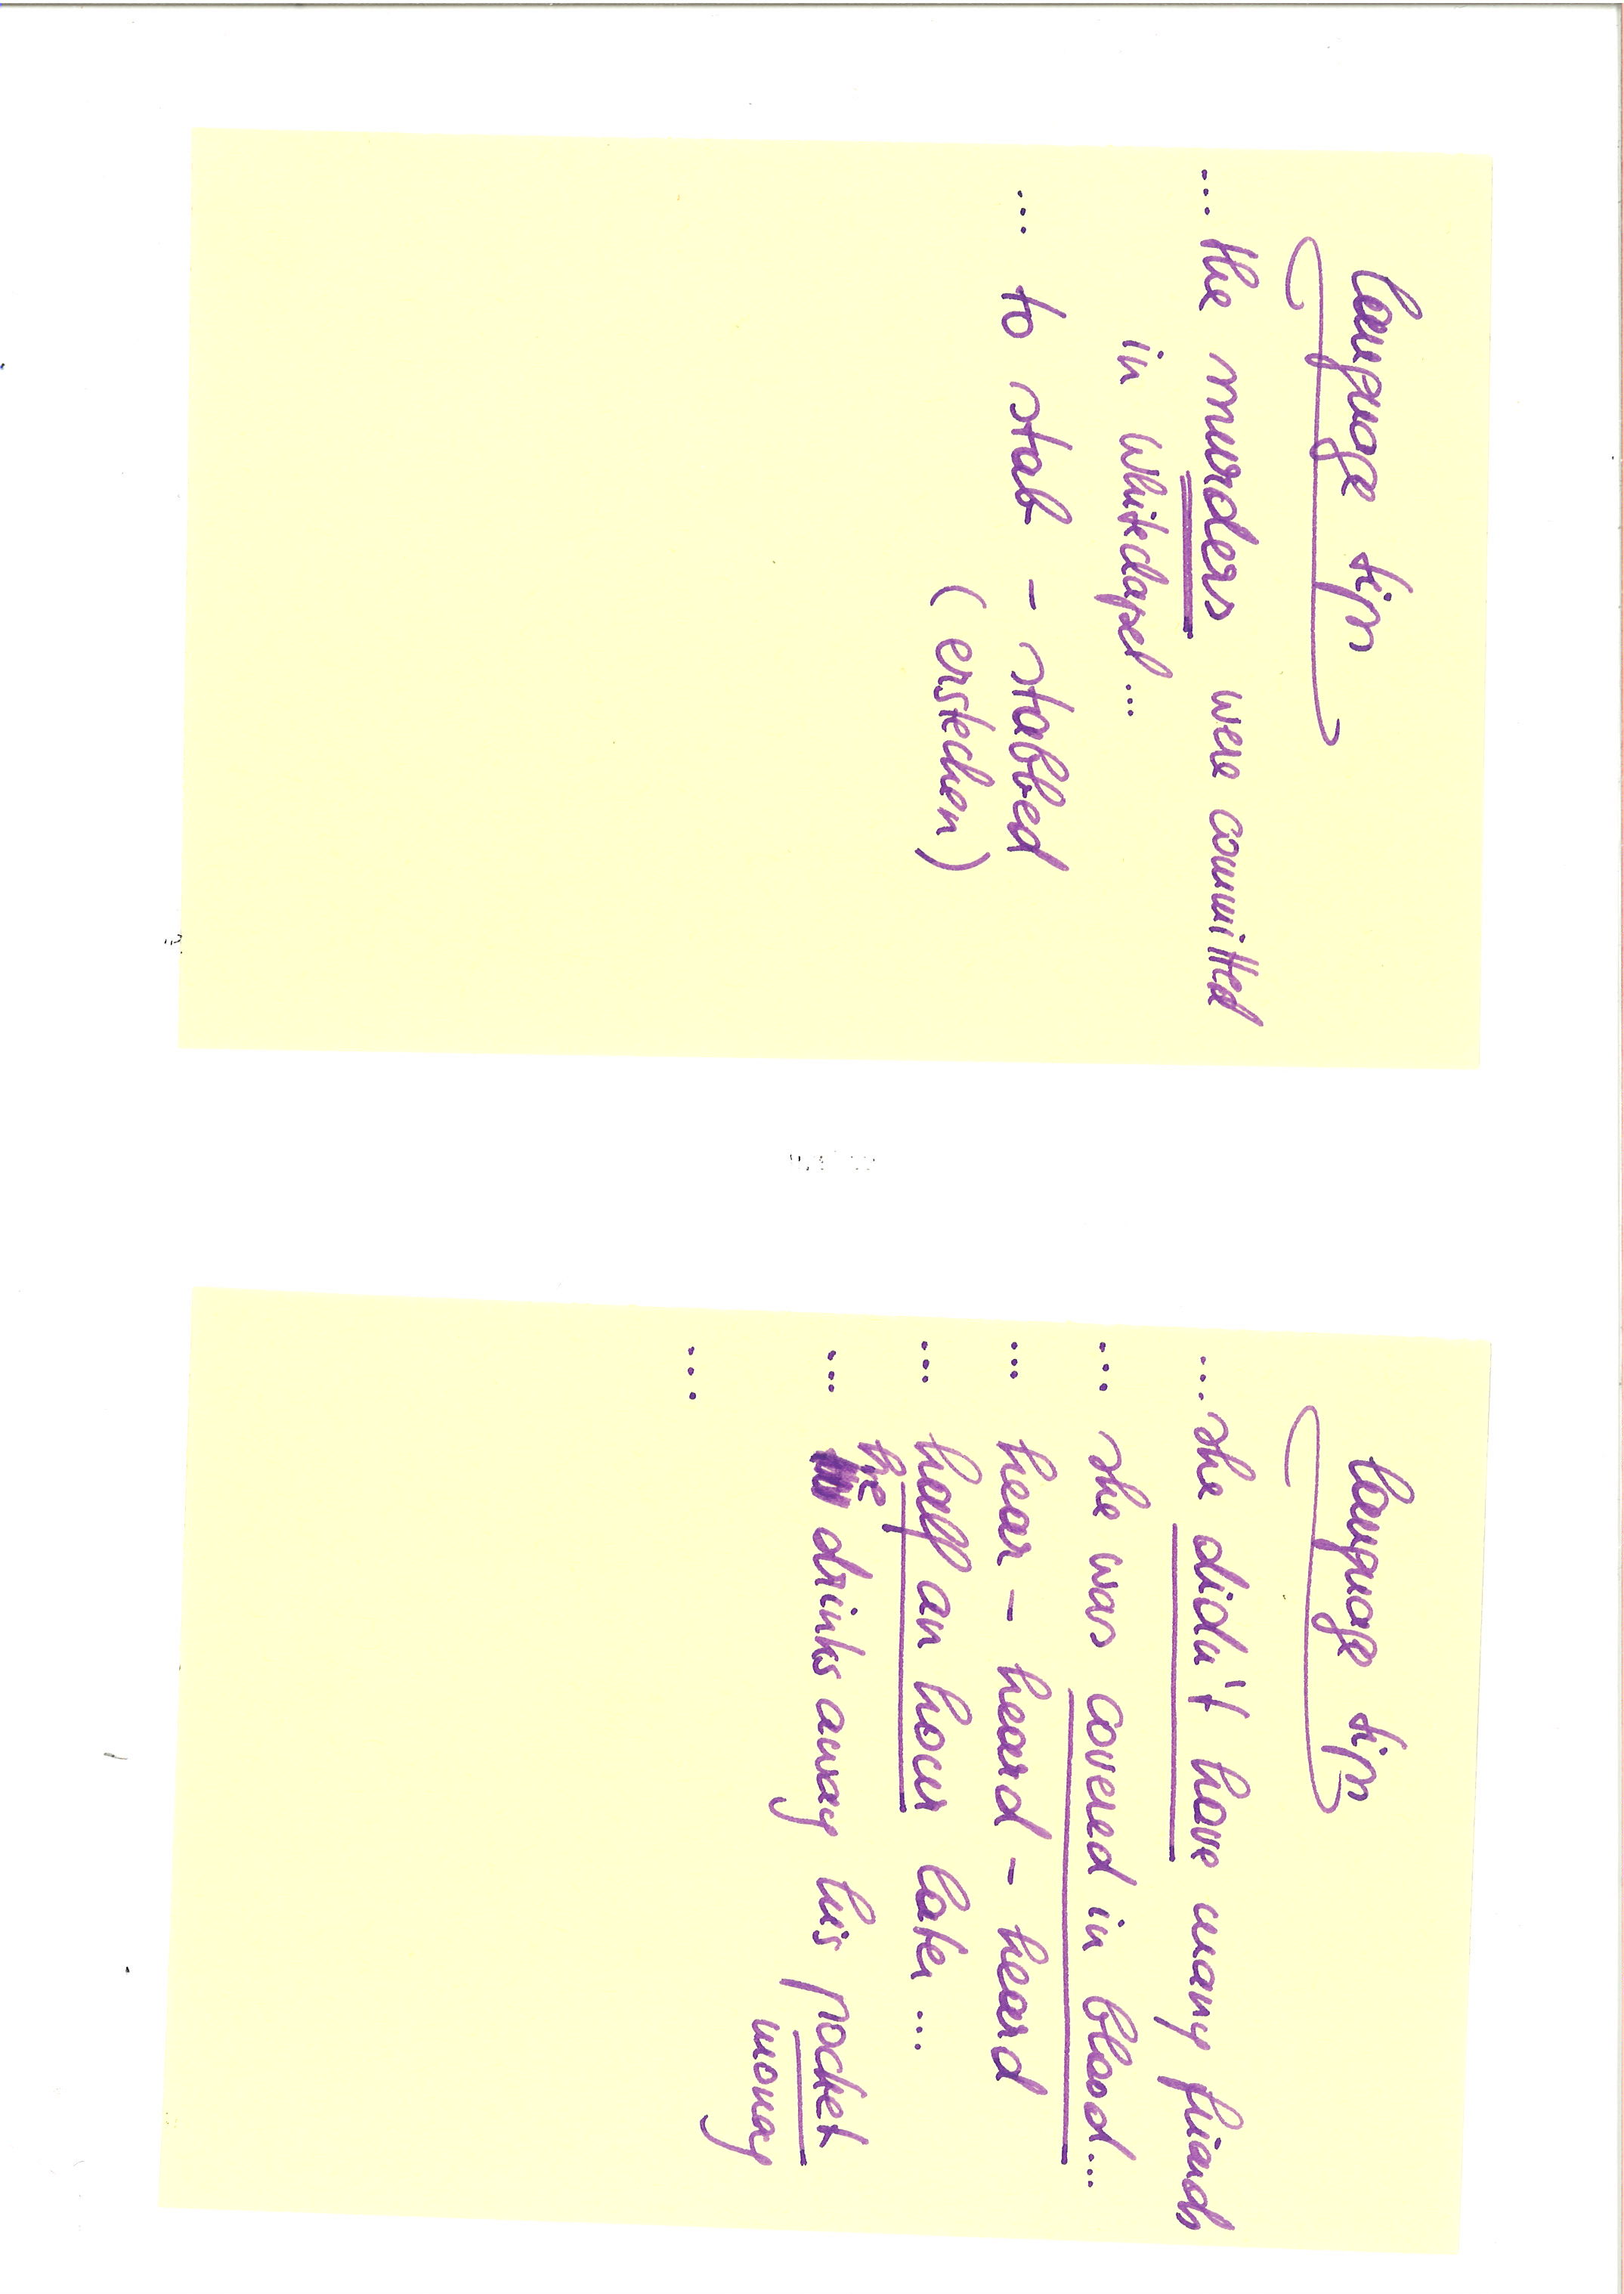 language tip
... the murders were committed
in Whitechapel ...
... to stab - stabbed
(erstechen)
language tip
... she didn't have many friends
... she was covered in blood...
... hear - heard - heard
... half an hour later ...
he
... drinks away his pocket
money
...